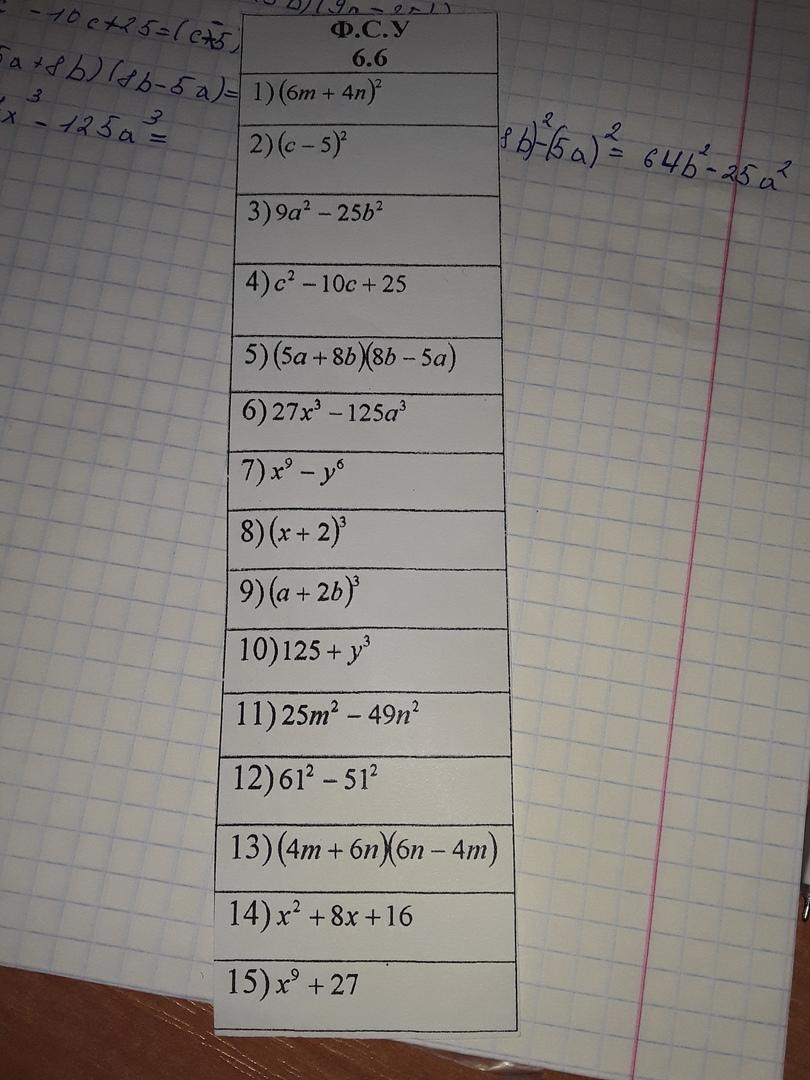 - 10c + 25 = (c - 5)
a + 8b) (8b - 5a) =
x³ - 125a³ =
8b)² - (5a)² = 64b² - 25a²
Ф.С.У
6.6
1) (6m + 4n)²
2) (c − 5)²
3) 9a² − 25b²
4) c² − 10c + 25
5) (5a + 8b)(8b − 5a)
6) 27x³ − 125a³
7) x⁹ − y⁶
8) (x + 2)³
9) (a + 2b)³
10) 125 + y³
11) 25m² − 49n²
12) 61² − 51²
13) (4m + 6n)(6n − 4m)
14) x² + 8x + 16
15) x⁹ + 27